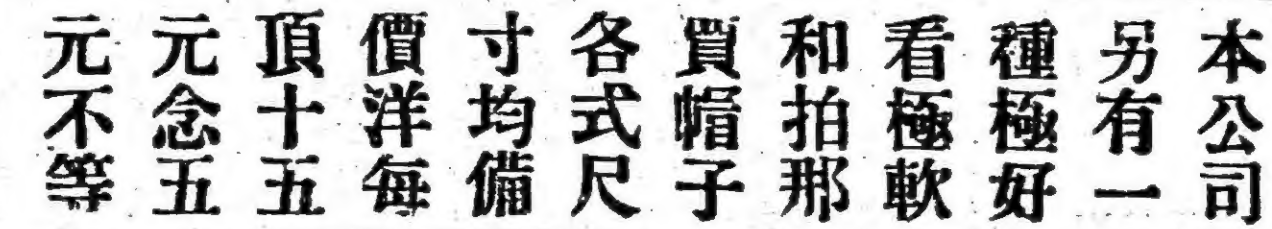 本公司
另有一
種極好
看極軟
和拍那
買帽子
各式尺
寸均備
價洋每
頂十五
元念五
元不等